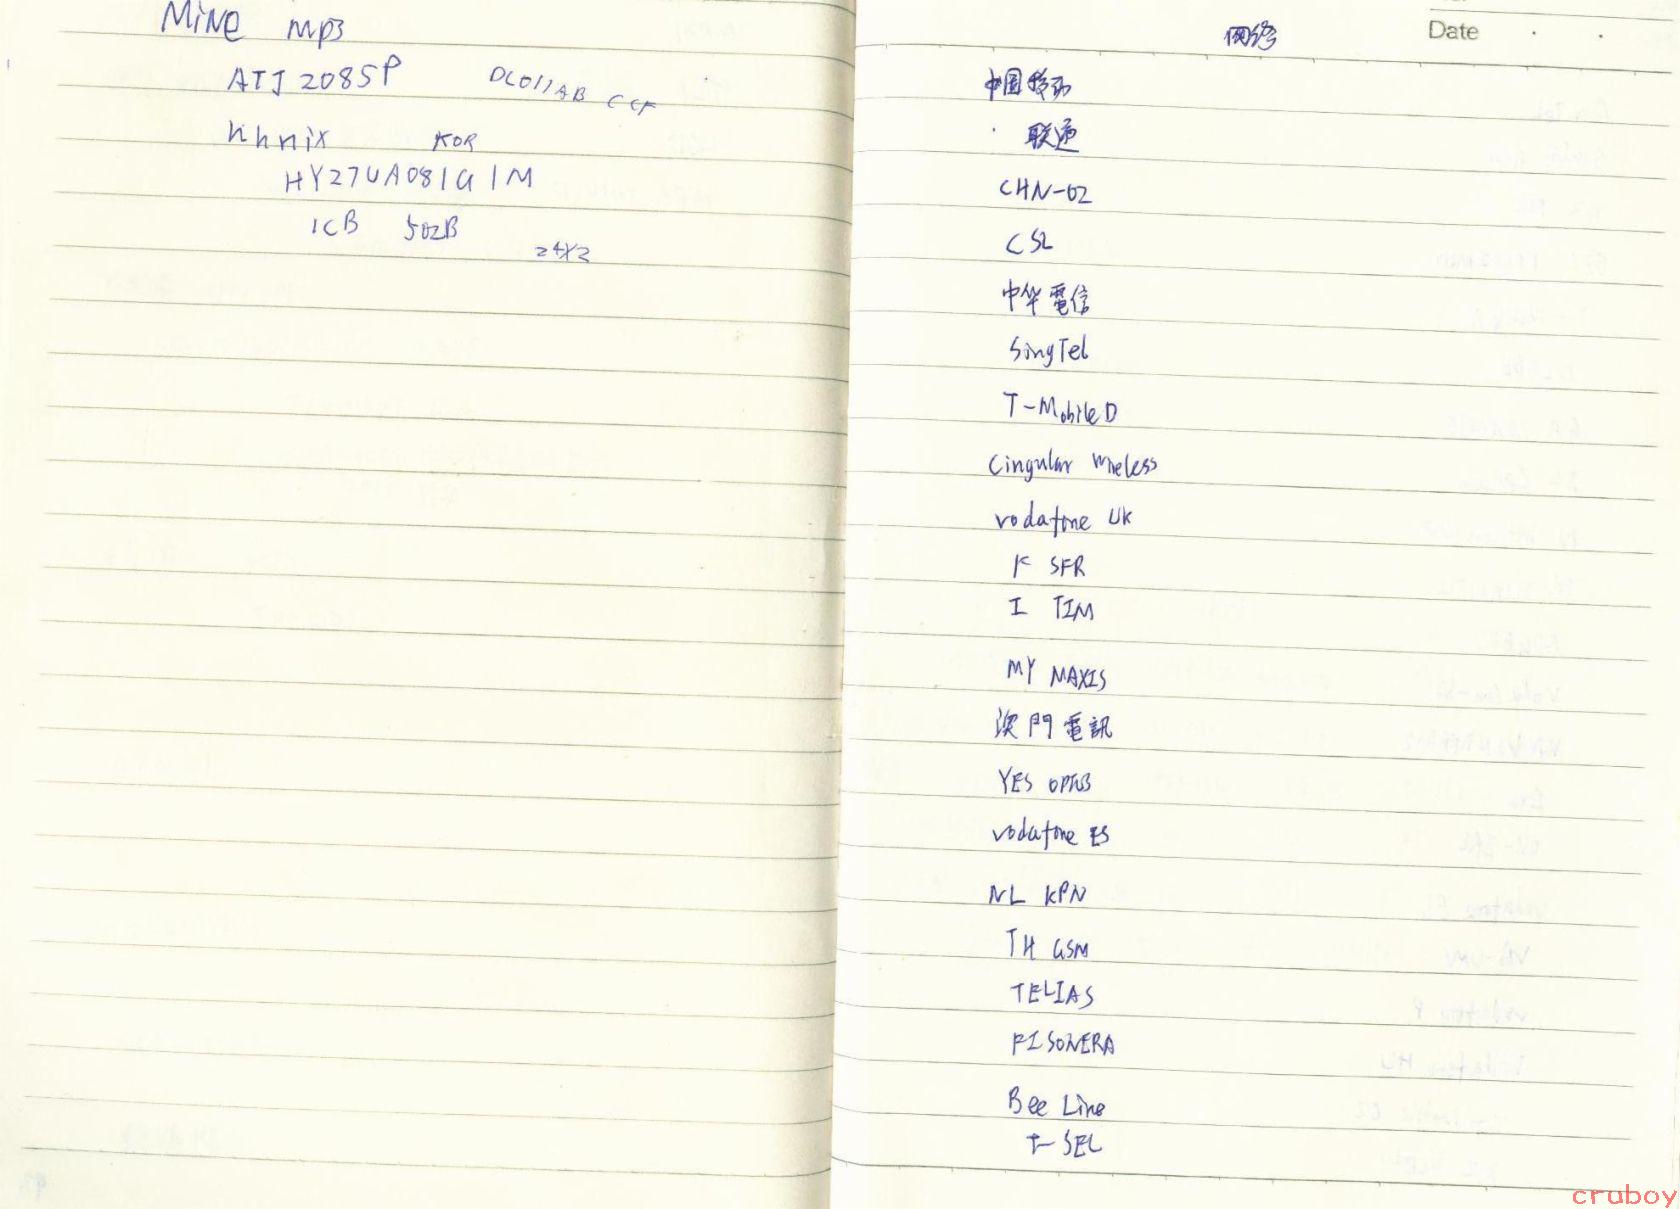 Mine mp3
ATJ 2085P DL011AB CCF
hhnix KOR
HY27UA081G1M
1CB 502B
24X2
网络
Date
中国移动
联通
CHN-02
CSL
中华電信
SingTel
T-Mobile D
Cingular Wireless
vodafone UK
F SFR
I TIM
MY MAXIS
澳門電訊
YES OPTUS
vodafone ES
NL KPN
TH GSM
TELIAS
FI SONERA
Bee Line
T-SEL
cruboy